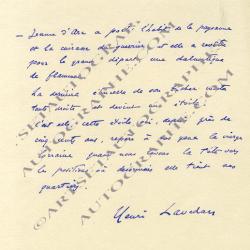 — Jeanne d'Arc a porté l'habit de la paysanne
et la cuirasse du guerrier, et elle a revêtu
pour le grand départ une dalmatique
de flammes.
La dernière étincelle de son bûcher monta
tout droit et devint une étoile.
C'est elle, cette étoile qui, depuis près de
cinq cents ans, repose à nos yeux la vierge
lorraine quand nous levons la tête vers
la position où désormais elle tient ses
quartiers.
Henri Lavedan